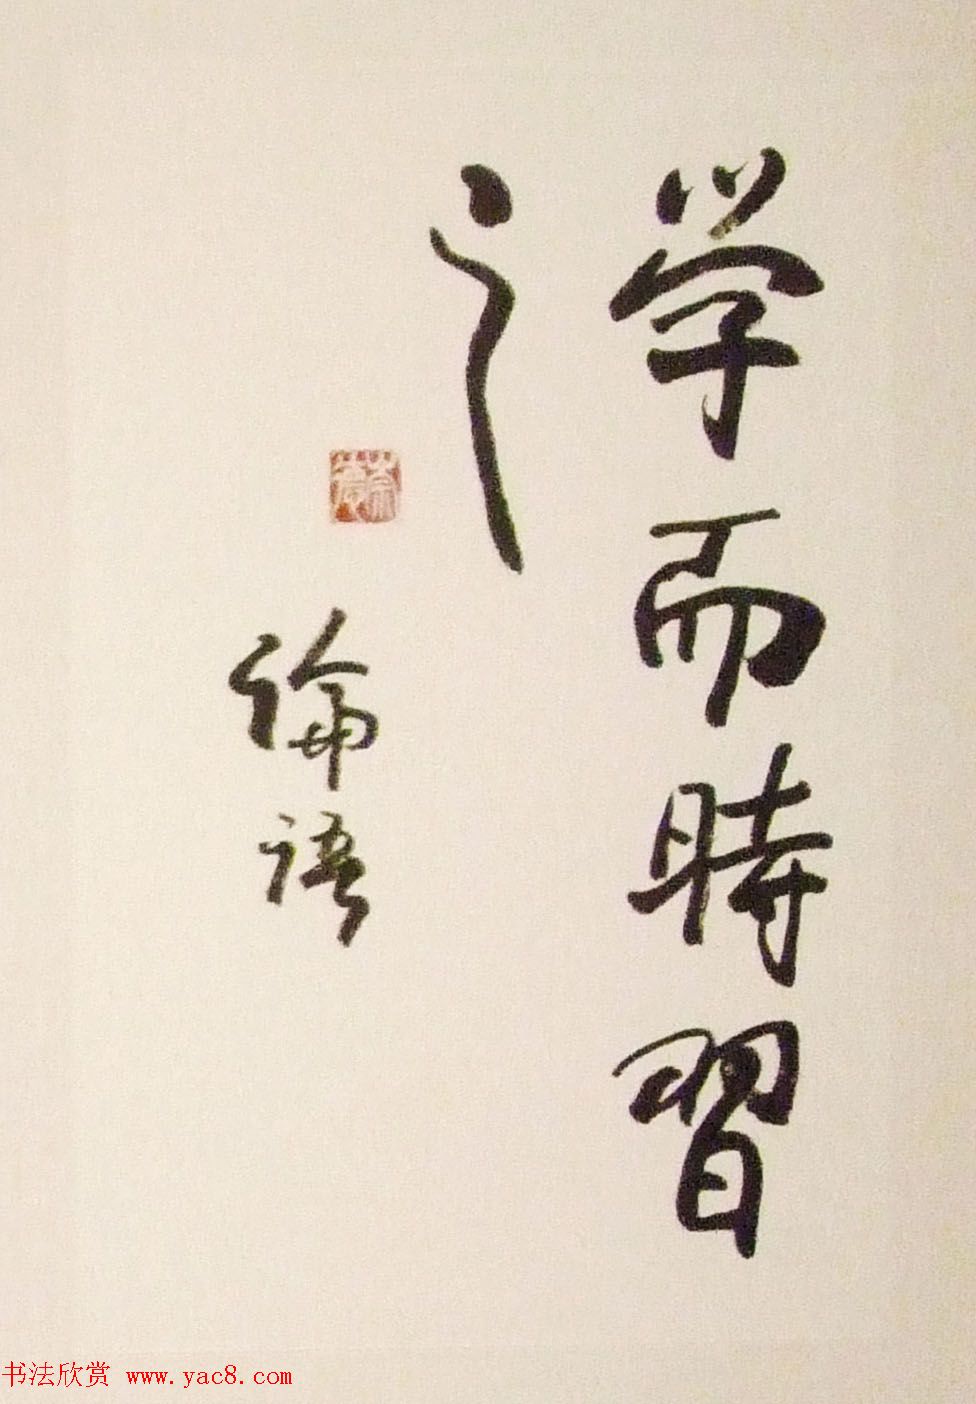 学而時習
之
論語
书法欣赏 www.yac8.com